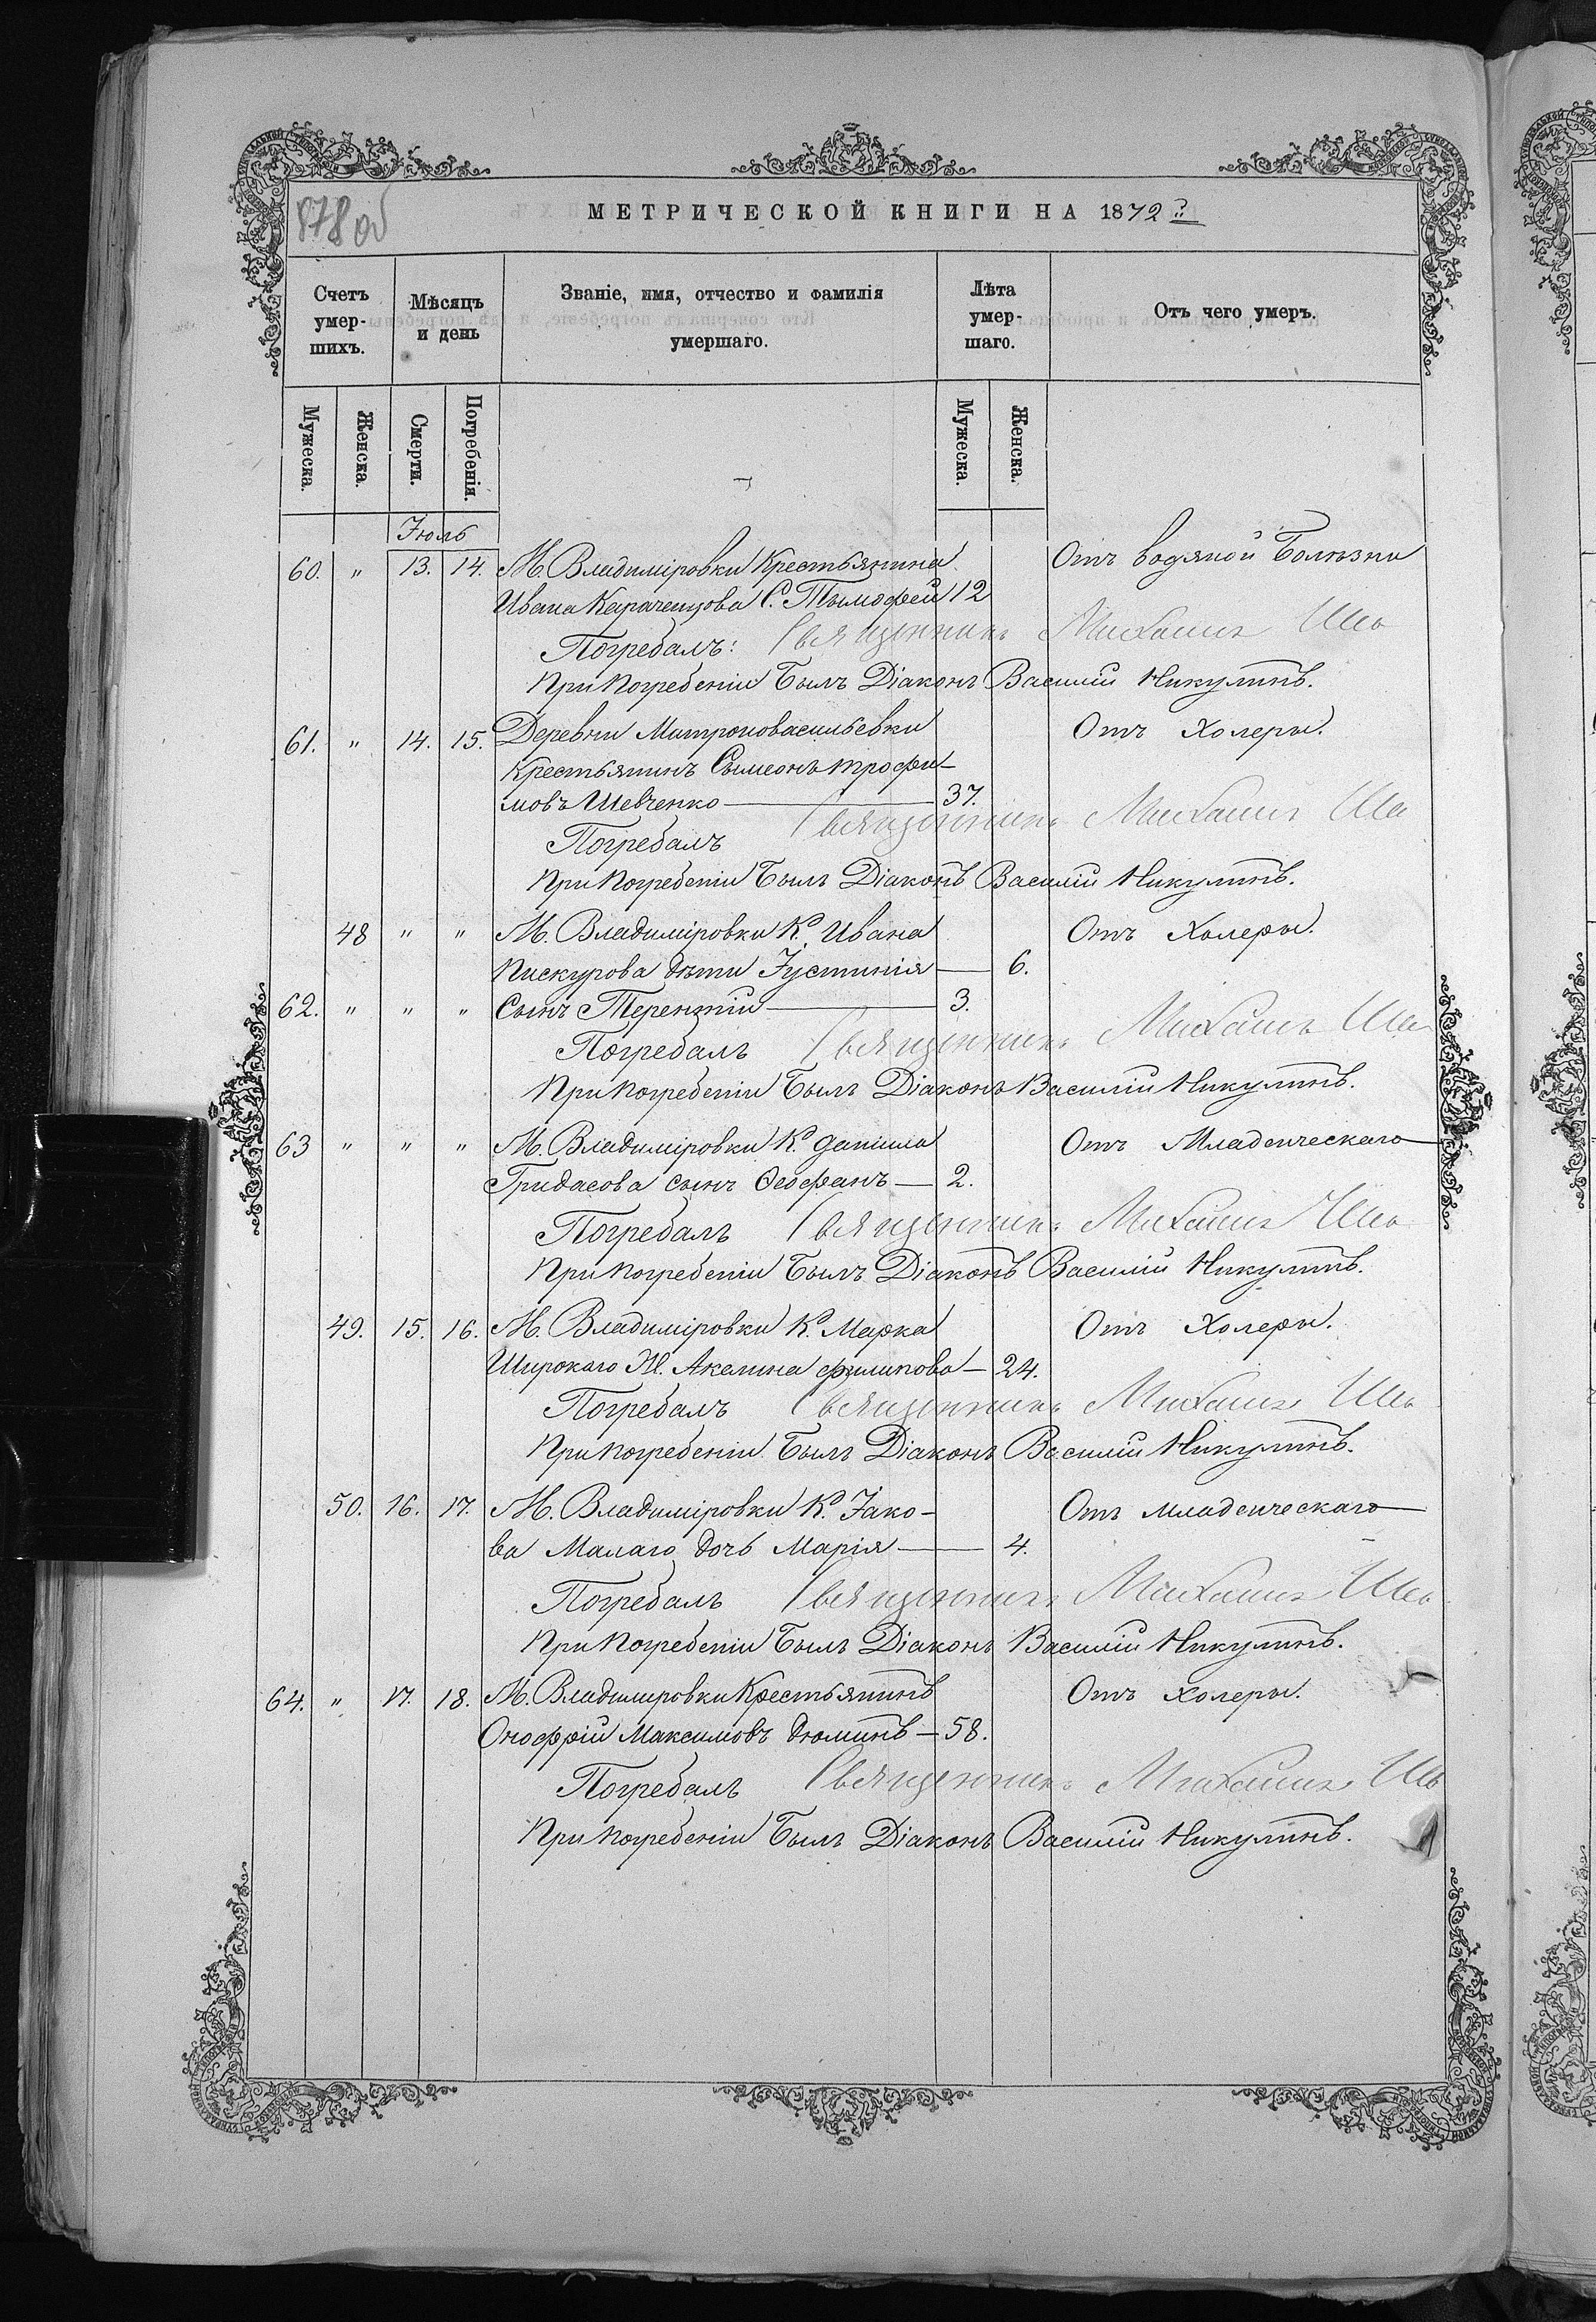 878 об
МЕТРИЧЕСКОЙ КНИГИ НА 1872 г.
Счетъ умер-шихъ. Мѣсяцъ и день Званіе, имя, отчество и фамилія умершаго. Лѣта умер-шаго. Отъ чего умеръ.
Мужеска. Женска. Смерти. Погребенія. Мужеска. Женска.
Іюль
60. " 13. 14. М. Владиміровки Крестьянина Отъ водяной Болѣзни
Ивана Караченцова С. Тымофей 12
Погребалъ: Священникъ Михаилъ
При Погребеніи Былъ Діаконъ Василій Никулинъ.
61. " 14. 15. Деревни Митроновасильевки Отъ Холеры.
Крестьянинъ Сымеонъ трофи-
мовъ Шевченко — 37.
Погребалъ Священникъ Михаилъ
При Погребеніи Былъ Діаконъ Василій Никулинъ.
48 " " М. Владиміровки Кр. Ивана Отъ Холеры.
Пискурова дѣти Іустинія — 6.
62. " " " Сынъ Терентій — 3.
Погребалъ Священникъ Михаилъ
При погребеніи Былъ Діаконъ Василій Никулинъ.
63 " " " М. Владиміровки Кр. даниила Отъ Младенческаго
Гридасова сынъ Ѳеофанъ — 2.
Погребалъ Священникъ Михаилъ
При погребеніи Былъ Діаконъ Василій Никулинъ.
49. 15. 16. М. Владиміровки Кр. Марка Отъ Холеры.
Широкаго Ж. Акелина филипова — 24.
Погребалъ Священникъ Михаилъ
При погребеніи Былъ Діаконъ Василій Никулинъ.
50. 16. 17. М. Владиміровки Кр. Іако- Отъ младенческаго
ва Малаго дочь Марія — 4.
Погребалъ Священникъ Михаилъ
При Погребеніи Былъ Діаконъ Василій Никулинъ.
64. " 17. 18. М. Владимировки Крестьянинъ Отъ холеры.
Онофрій Максимовъ дюминъ — 58.
Погребалъ Священникъ Михаилъ
При погребеніи Былъ Діаконъ Василій Никулинъ.